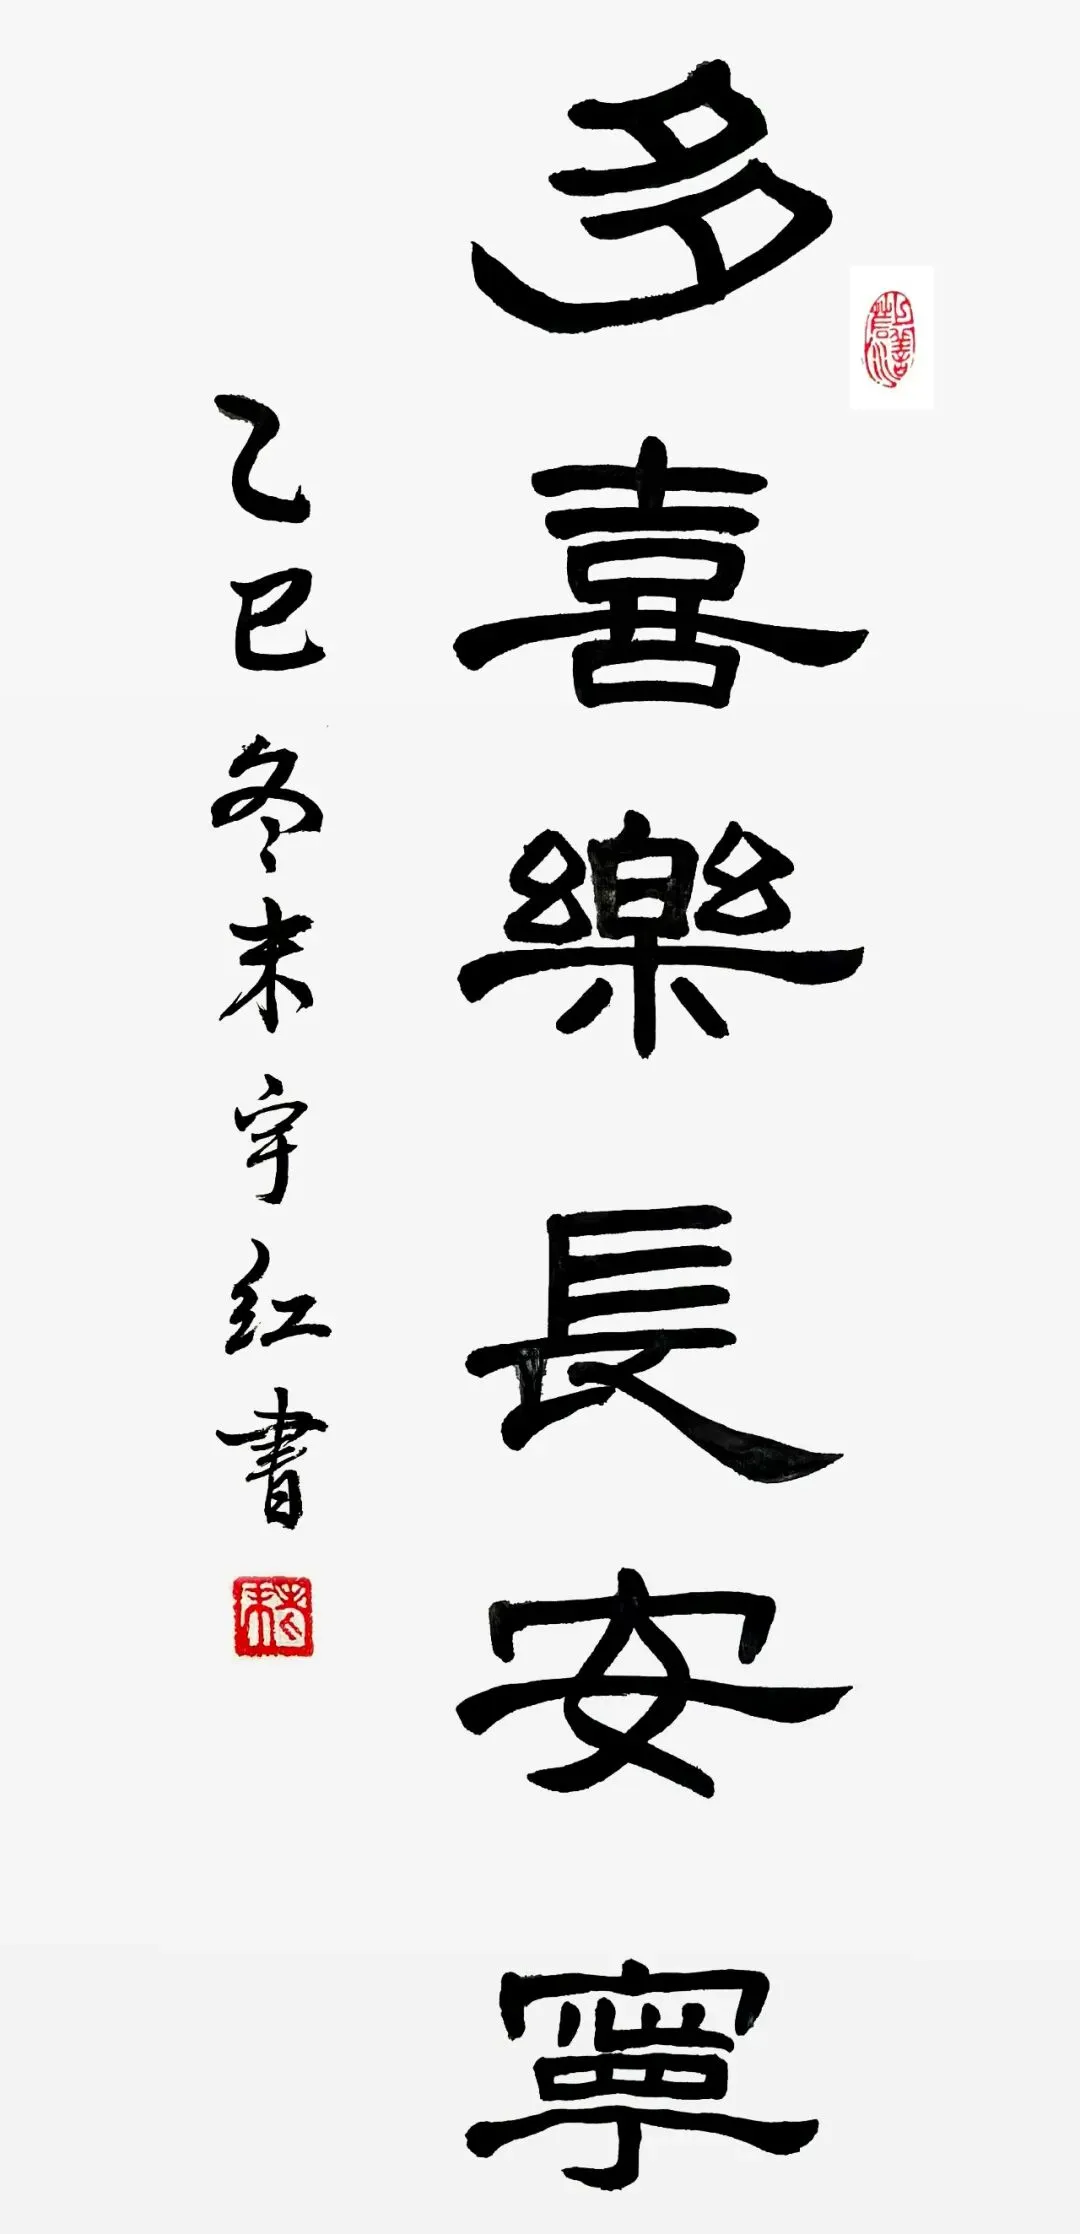 多喜樂長安寧
乙巳冬末宇红書